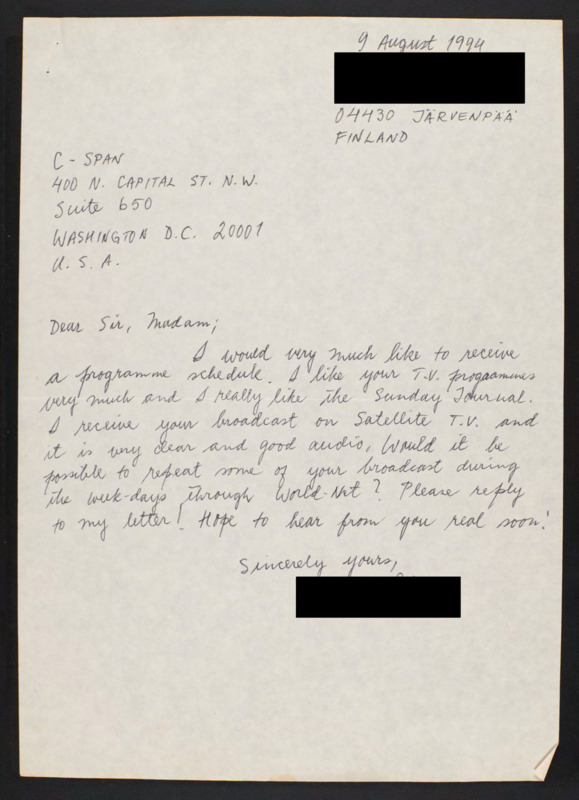 9 August 1994
04430 JÄRVENPÄÄ
FINLAND
C-SPAN
400 N. CAPITAL ST. N.W.
Suite 650
WASHINGTON D.C. 20001
U.S.A.
Dear Sir, Madam;
I would very much like to receive
a programme schedule. I like your T.V. progaammes
very much and I really like the Sunday Journal.
I receive your broadcast on Satellite T.V. and
it is very clear and good audio, Would it be
possible to repeat some of your broadcast during
the week-days through World-Net? Please reply
to my letter! Hope to hear from you real soon!
Sincerely yours,